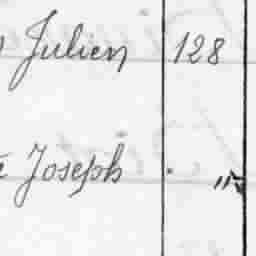 Julien 128
Joseph